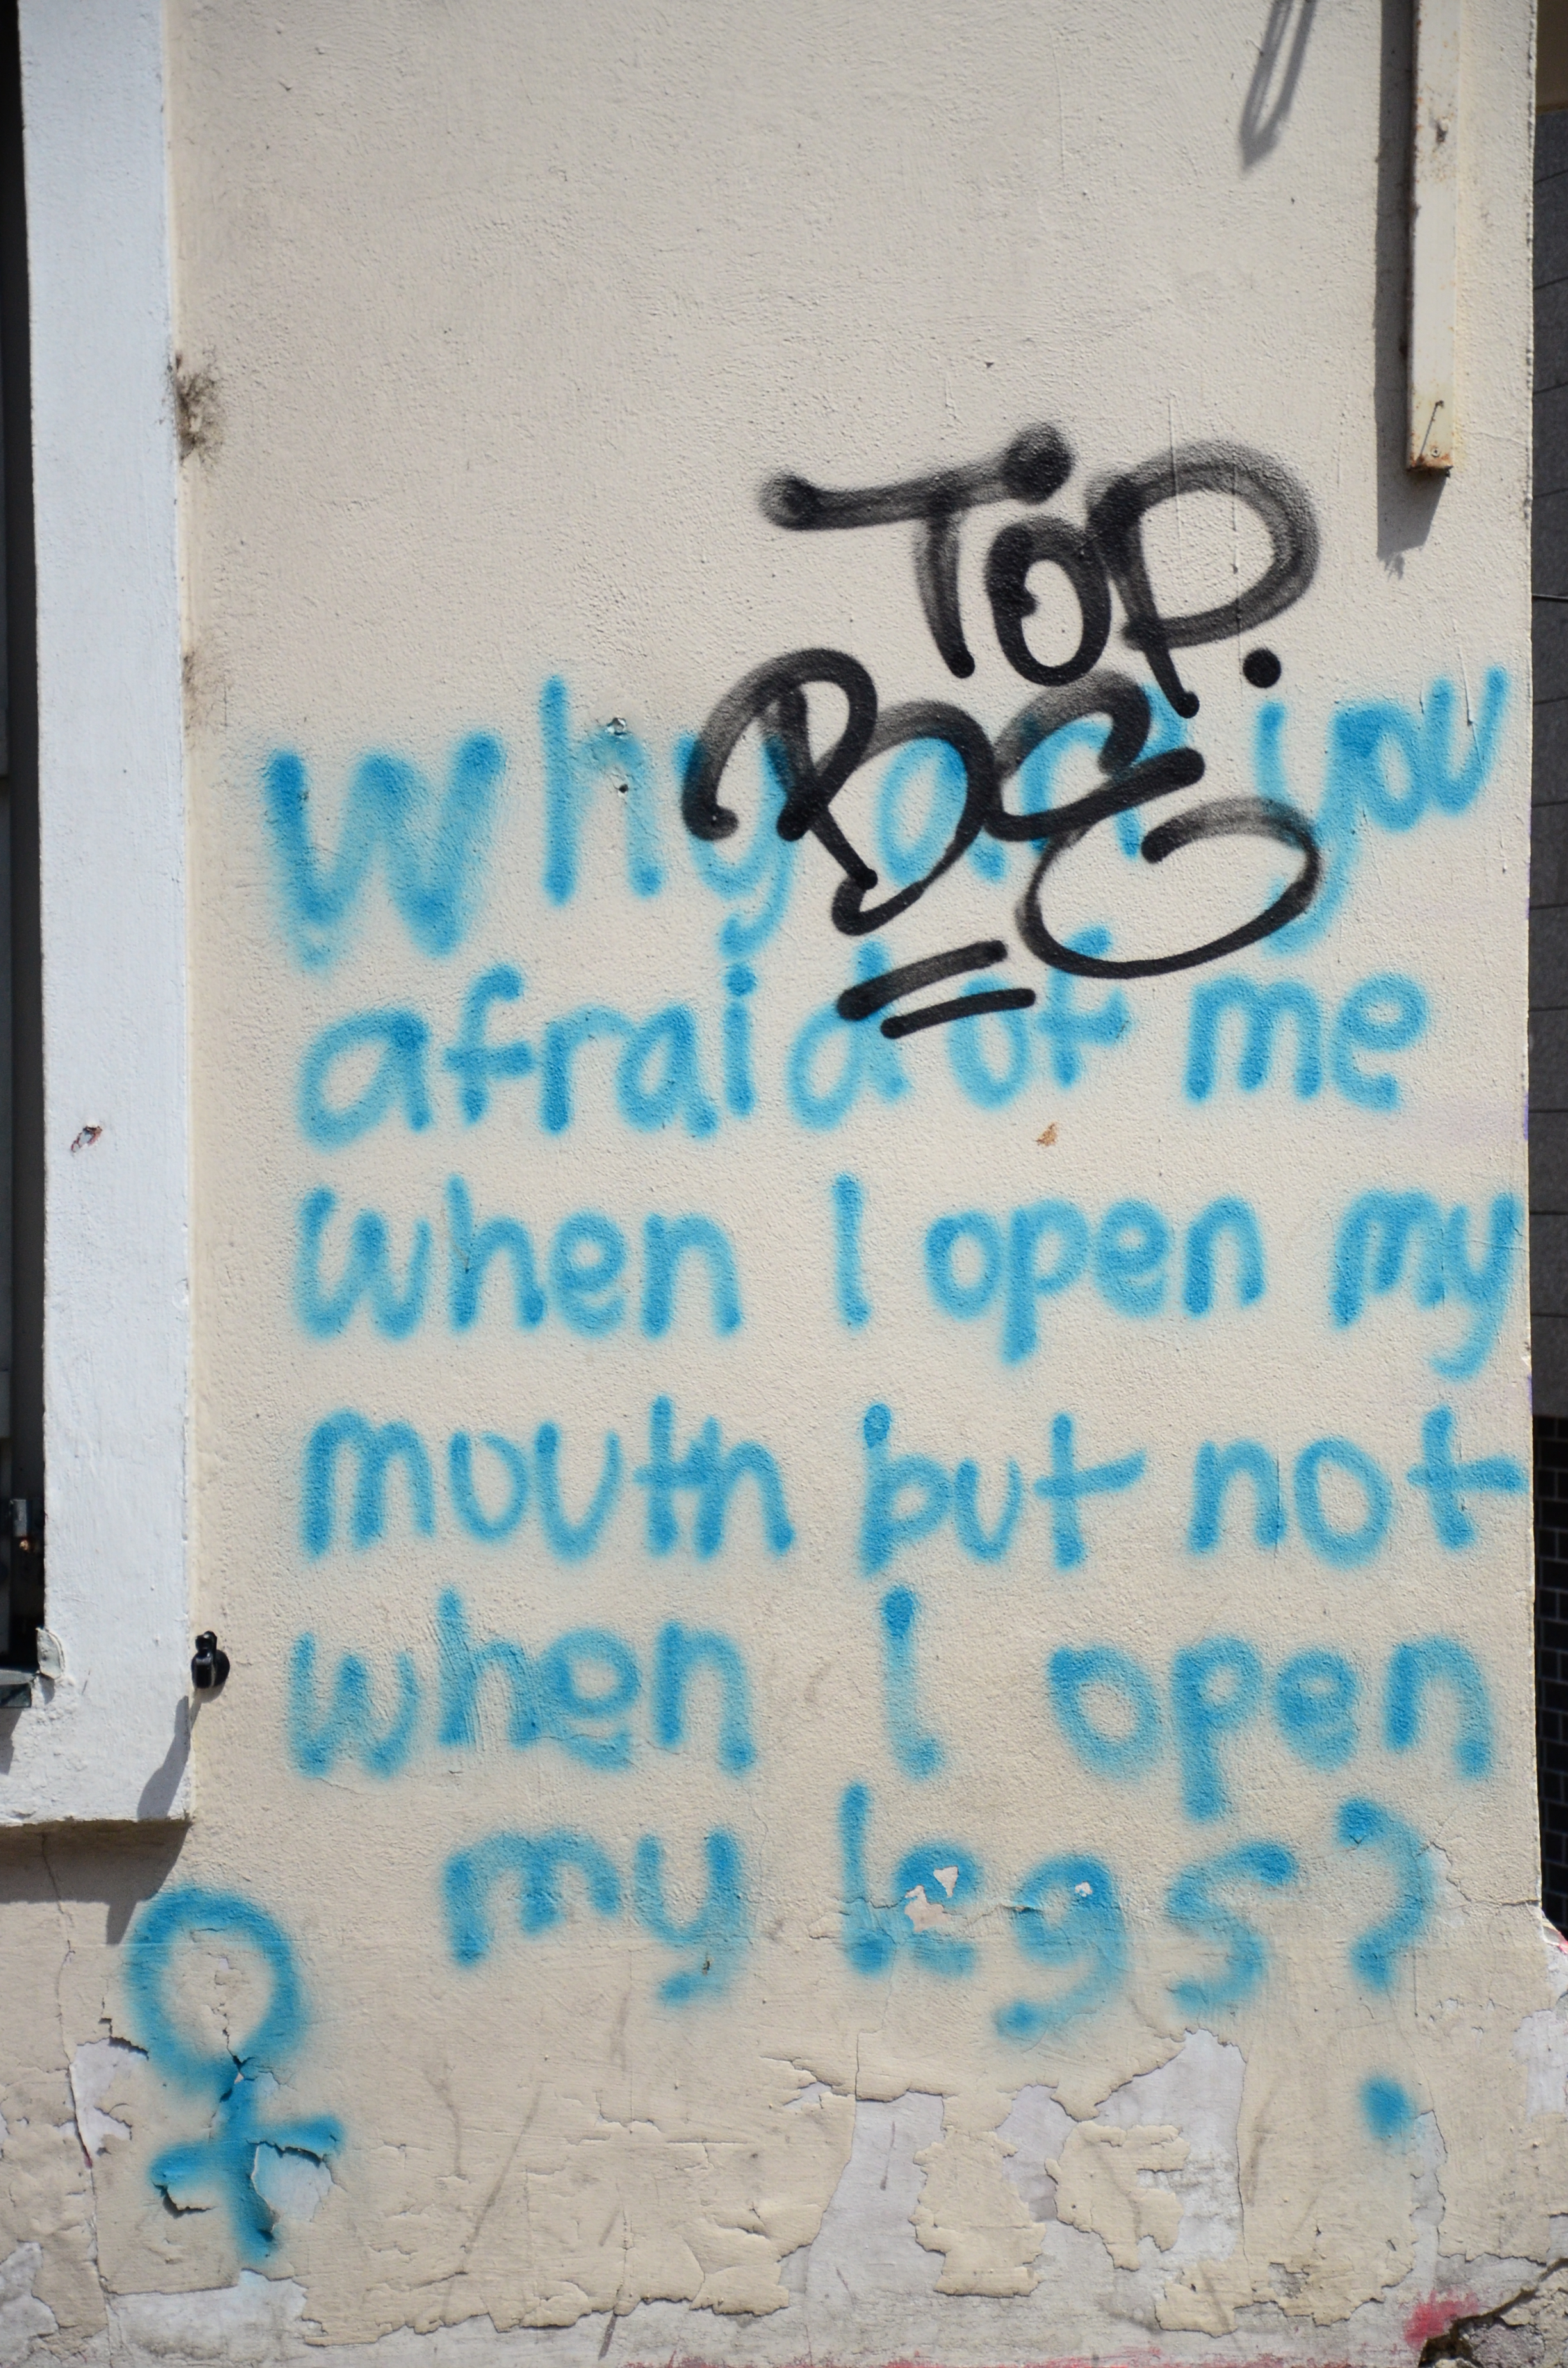 TOP.
Why are you
afraid of me
when I open my
mouth but not
when I open
my legs?